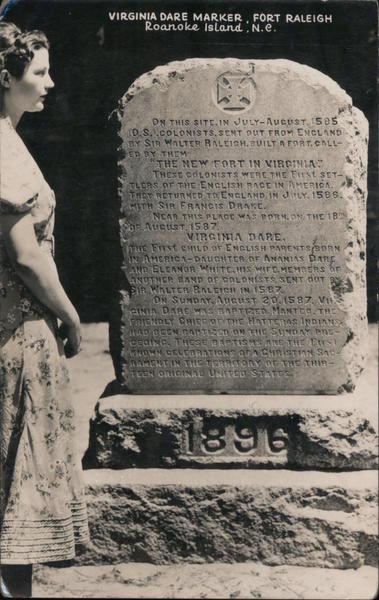 VIRGINIA DARE MARKER, FORT RALEIGH
ROANOKE ISLAND, N.C.
ON THIS SITE, IN JULY-AUGUST, 1585
(O.S.), COLONISTS, SENT OUT FROM ENGLAND
BY SIR WALTER RALEIGH, BUILT A FORT, CALL-
ED BY THEM
"THE NEW FORT IN VIRGINIA."
THESE COLONISTS WERE THE FIRST SET-
TLERS OF THE ENGLISH RACE IN AMERICA.
THEY RETURNED TO ENGLAND IN JULY, 1586,
WITH SIR FRANCIS DRAKE.
NEAR THIS PLACE WAS BORN, ON THE 18TH
OF AUGUST, 1587,
VIRGINIA DARE,
THE FIRST CHILD OF ENGLISH PARENTS BORN
IN AMERICA-DAUGHTER OF ANANIAS DARE
AND ELEANOR WHITE, HIS WIFE, MEMBERS OF
ANOTHER BAND OF COLONISTS, SENT OUT BY
SIR WALTER RALEIGH IN 1587.
ON SUNDAY, AUGUST 20, 1587, VIR-
GINIA DARE WAS BAPTIZED. MANTEO, THE
FRIENDLY CHIEF OF THE HATTERAS INDIANS,
HAD BEEN BAPTIZED ON THE SUNDAY PRE-
CEDING. THESE BAPTISMS ARE THE FIRST
KNOWN CELEBRATIONS OF A CHRISTIAN SAC-
RAMENT IN THE TERRITORY OF THE THIR-
TEEN ORIGINAL UNITED STATES.
1896